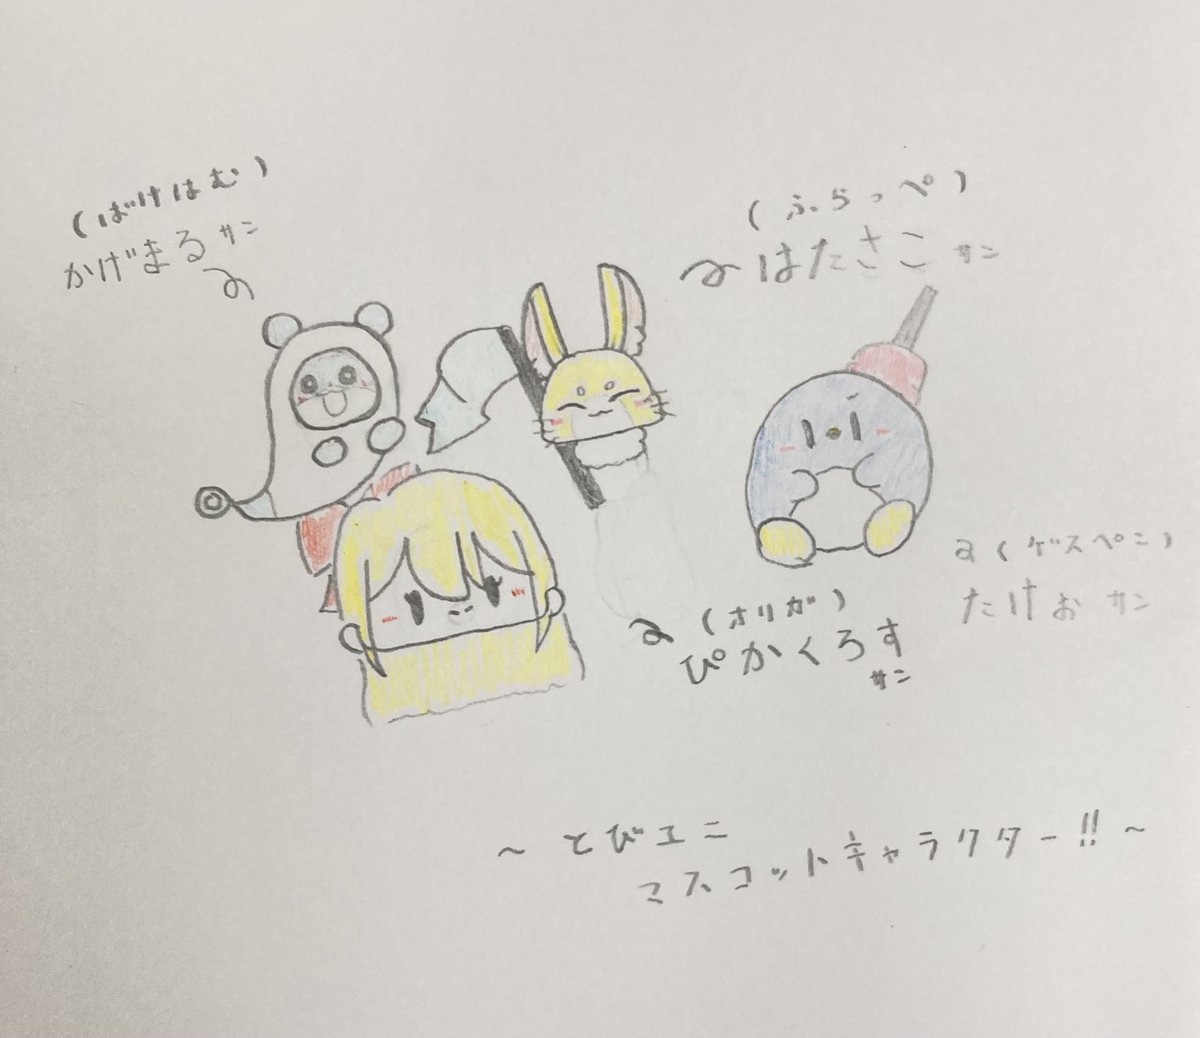 (ばけはむ)
かげまるサン
(ふらっぺ)
はたさこサン
(ゲスペン)
たけおサン
(オリガ)
ぴかくろす
サン
～とびエニ
マスコットキャラクター!!～